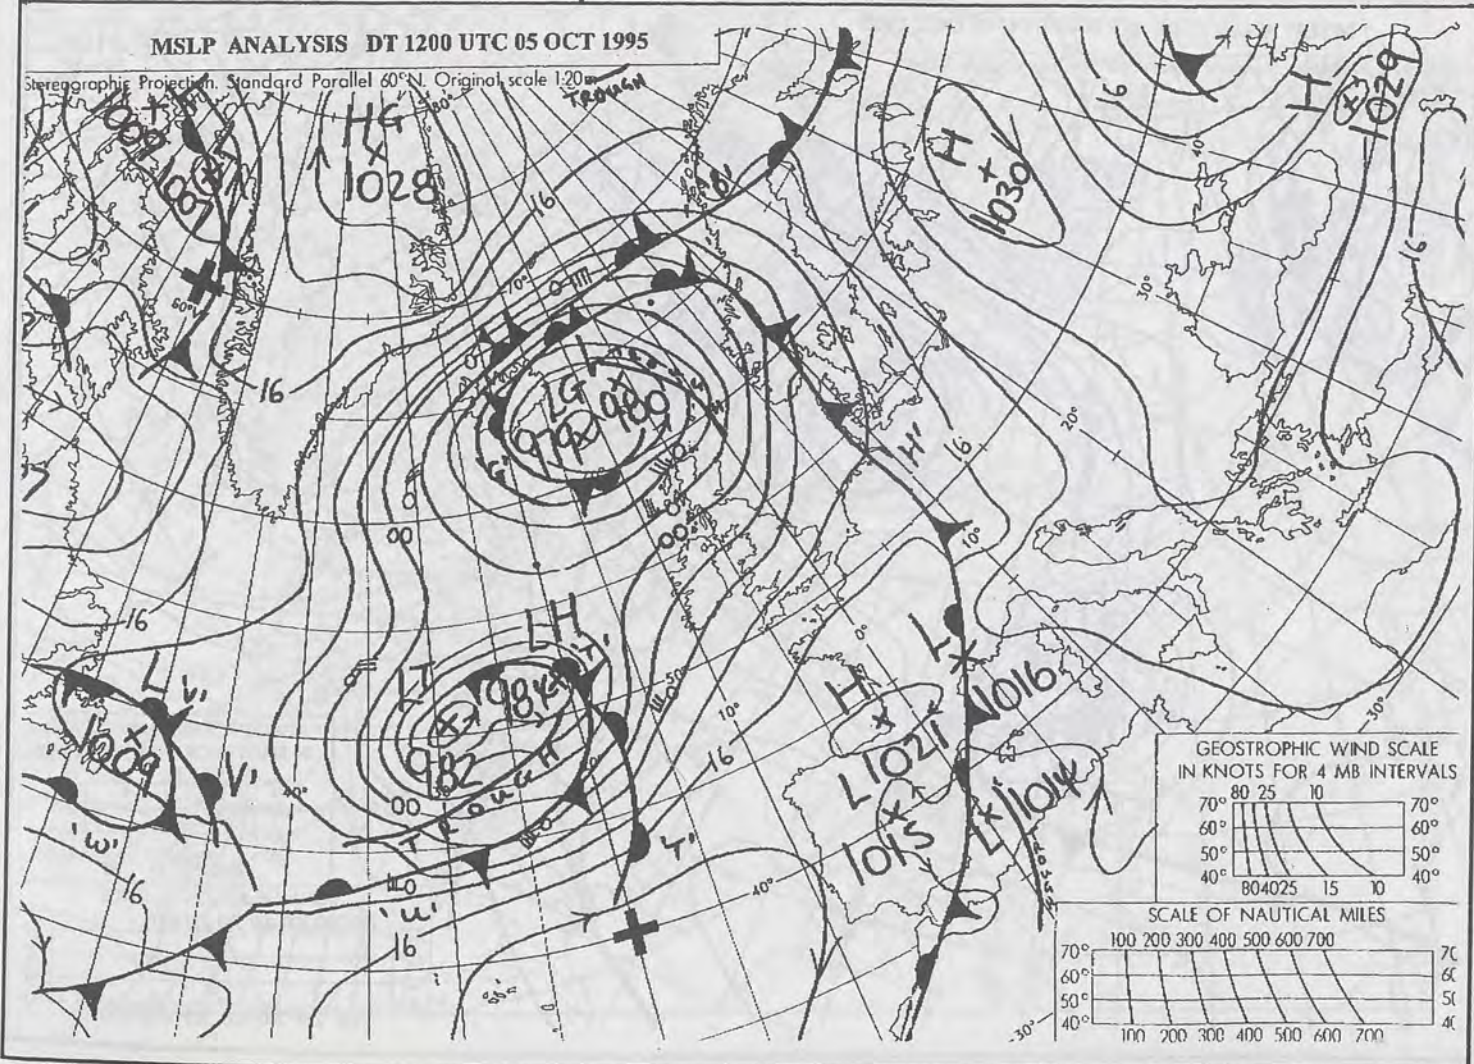 MSLP ANALYSIS DT 1200 UTC 05 OCT 1995
Stereographic Projection. Standard Parallel 60°N. Original scale 1:20m
TROUGH
1009
L
987
HG
1028
80°
16
'B'
H
1030
16
H
1029
40°
30°
16
70°
60°
0
16
L
LG
979
980
'G'
0
00
'H'
16
20°
10°
0
00
16
0
LT
LH
984
982
TROUGH
00
L
'V'
1009
'V'
'W'
16
40°
0
'U'
16
'T'
0
10°
16
0°
L
1016
H
1021
L
1015
L
1014
40°
30°
30°
GEOSTROPHIC WIND SCALE
IN KNOTS FOR 4 MB INTERVALS
80 25 10
70° 70°
60° 60°
50° 50°
40° 40°
80 40 25 15 10
SCALE OF NAUTICAL MILES
100 200 300 400 500 600 700
70°
60°
50°
40°
100 200 300 400 500 600 700